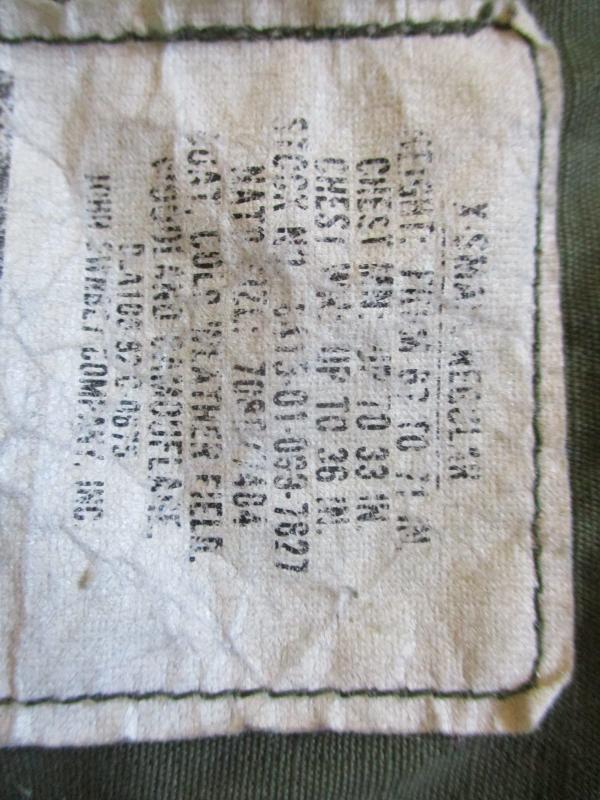 X-SMALL REGULAR
HEIGHT: FROM 67 TO 71 IN
CHEST MIN. UP TO 33 IN.
CHEST MAX. UP TO 36 IN.
STOCK NO. 8415-01-099-7827
NATO SIZE:
COAT, COLD WEATHER FIELD,
WOODLAND CAMOUFLAGE,
JOHN COMPANY, INC